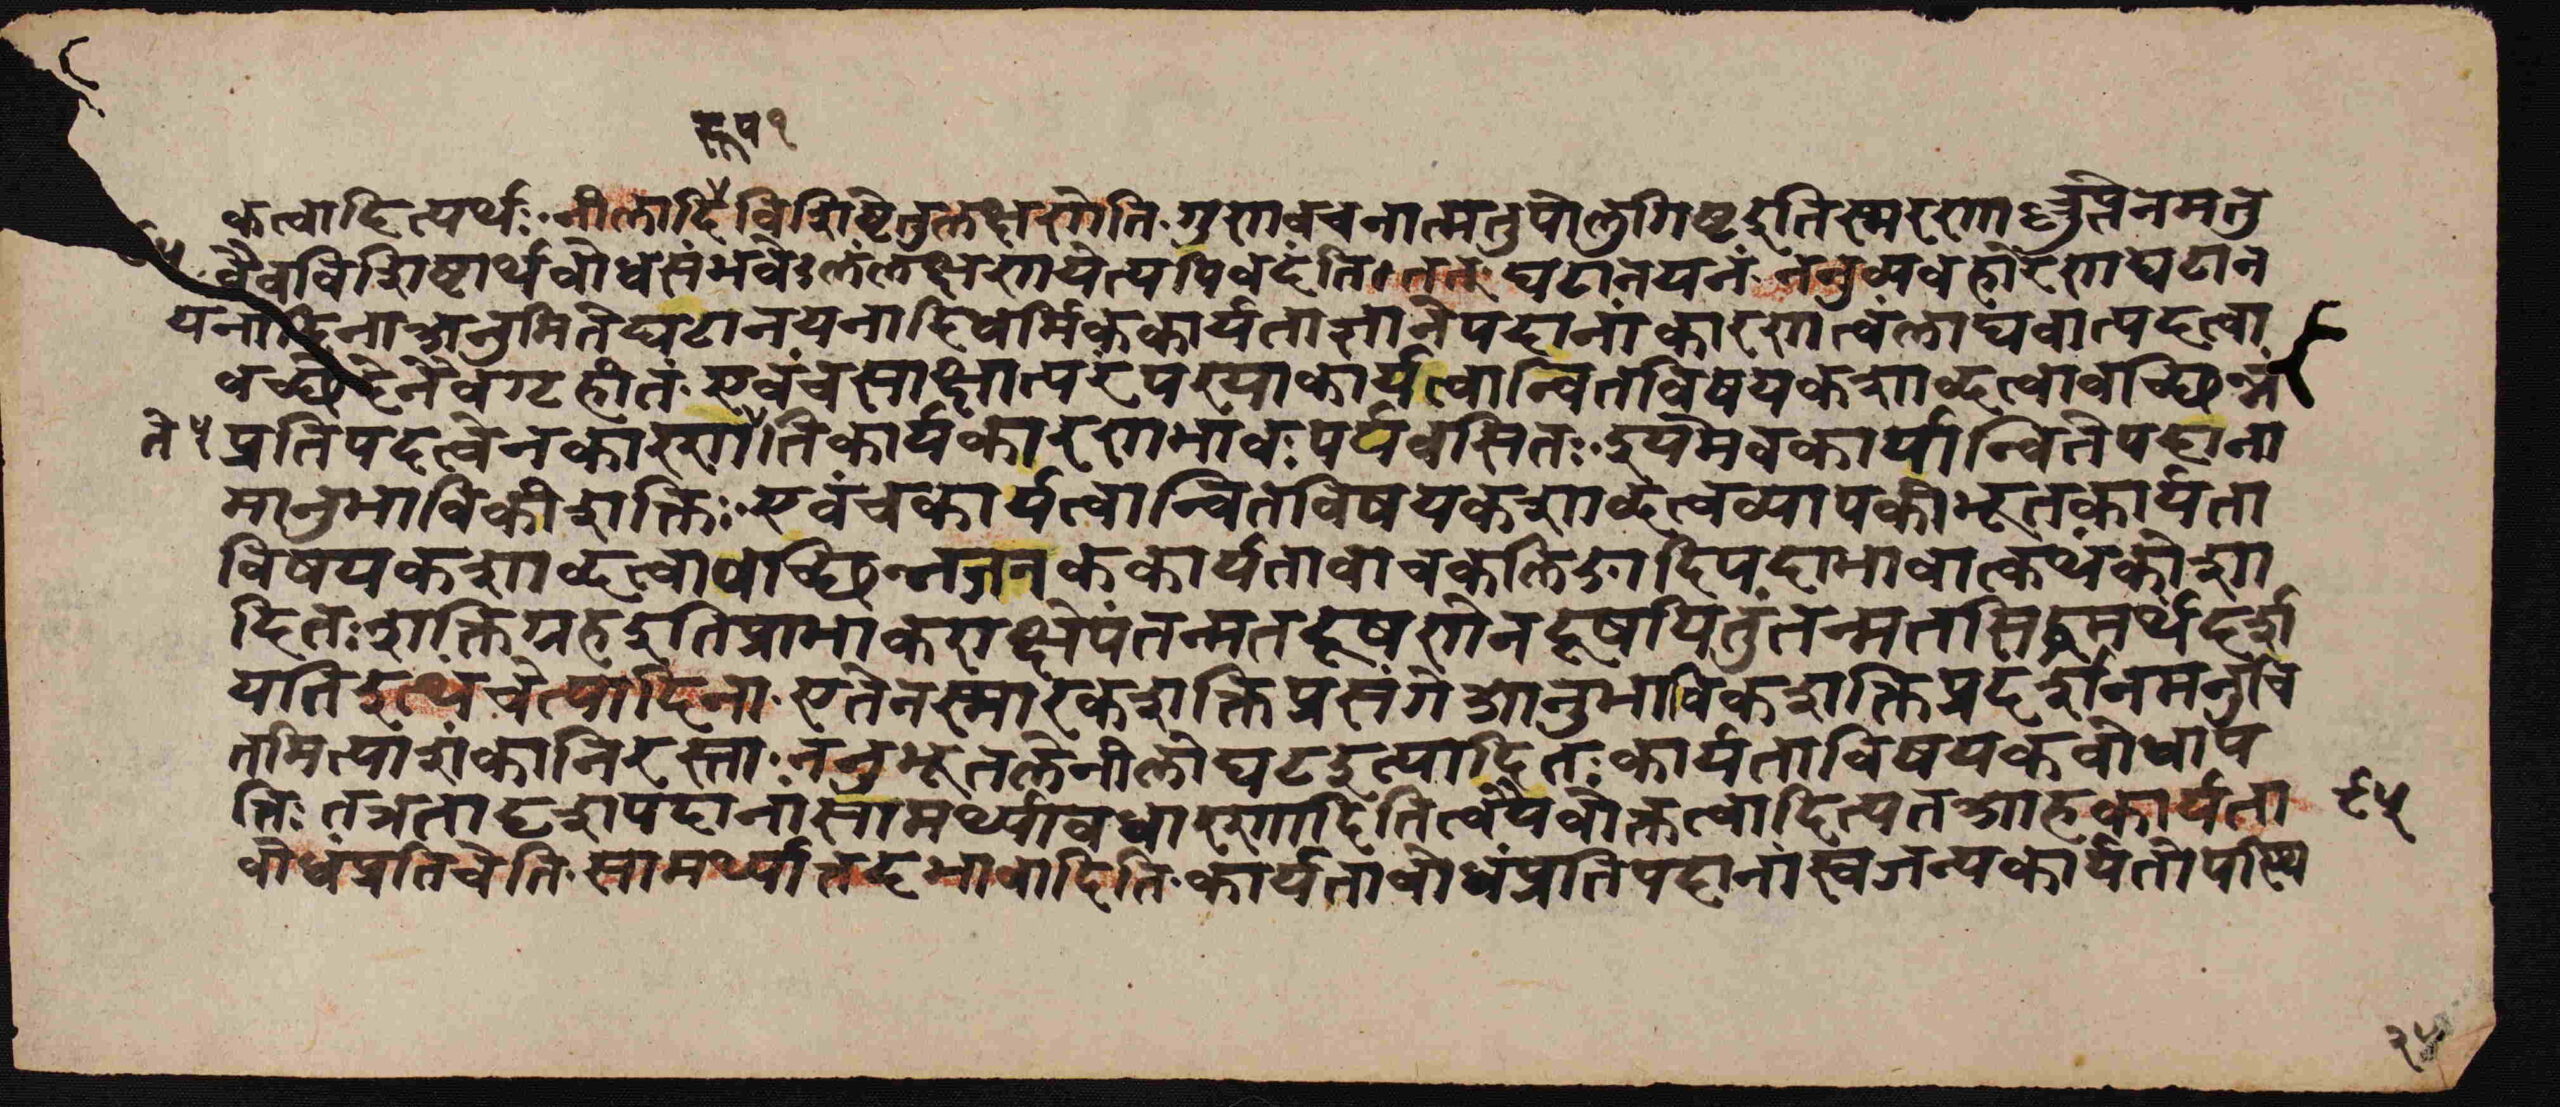 रूप१
कत्वादित्यर्थः॰नीलादिविशिष्टेतुलक्षणेति॰गुणवचनात्मतुपोलुगिष्टइतिस्मरणाल्लुप्तेनमतु
पैवविशिष्टार्थबोधसंभवेऽलंलक्षणयेत्यपिवदंति।तन्न॰घटानयनं॰ननुव्यवहारेणघटान
यनादिनाअनुमितेघटानयनादिधर्मिककार्यताज्ञानेपदानांकारणत्वंलाघवात्पदत्वा
वच्छेदेनैवगृहीतं॰एवंचसाक्षात्परंपरयाकार्यत्वान्वितविषयकशाब्दत्वावच्छिन्नं
ते५ प्रतिपदत्वेनकारणतिकार्यकारणभावःपर्यवसितः॰इयमेवकार्यान्वितेपदाना
मानुभाविकीशक्तिः॰एवंचकार्यत्वान्वितविषयकशाब्दत्वव्यापकीभूतकार्यता
विषयकशाब्दत्वावच्छिन्नजनककार्यतावाचकलिङादिपदाभावात्कथंकोशा
दितःशक्तिग्रहइतिप्राभाकराक्षेपंतन्मतदूषणेनदूषयितुंतन्मतसिद्धमर्थंदर्श
यतिइत्थंचेत्यादिना॰एतेनस्मारकशक्तिप्रसंगेआनुभाविकशक्तिप्रदर्शनमनुचि
तमित्याशंकानिरस्ता॰ननुभूतलेनीलोघटइत्यादितःकार्यताविषयकबोधाप
त्तिःतत्रतादृशपदानांसामर्थ्यावधारणादितित्वयैवोक्तत्वादित्यतआहकार्यता
बोधंप्रतिचेति॰सामर्थ्यातदभावादिति॰कार्यताबोधंप्रतिपदानांस्वजन्यकार्यतोपस्थि
२४